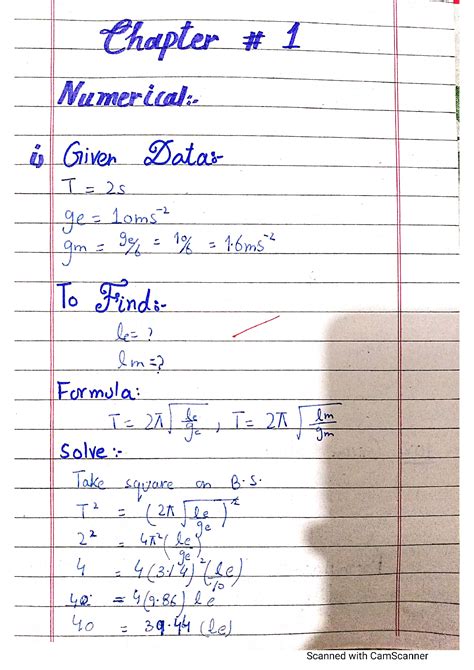 Chapter # 1
Numerical:-
i, Given Data:-
T = 2s
ge = 10ms⁻²
gm = ge/6 = 10/6 = 1.6ms⁻²
To Find:-
le = ?
lm = ?
Formula:
T = 2π √(le/ge) , T = 2π √(lm/gm)
Solve :-
Take square on B.S.
T² = (2π √(le/ge))²
2² = 4π² (le/ge)
4 = 4(3.14)² (le/10)
40 = 4(9.86) le
40 = 39.44 (le)
Scanned with CamScanner